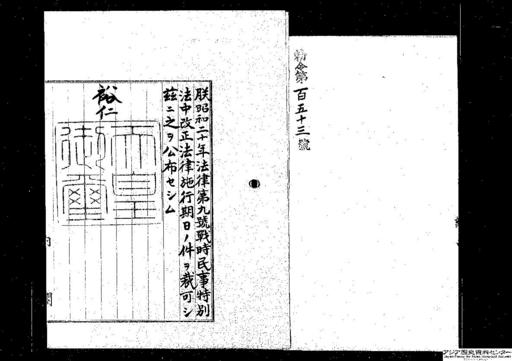 勅令第百五十三號
朕昭和二十年法律第九號戰時民事特別
法中改正法律施行期日ノ件ヲ裁可シ
茲ニ之ヲ公布セシム
裕仁
天皇
御璽
内閣
アジア歴史資料センター